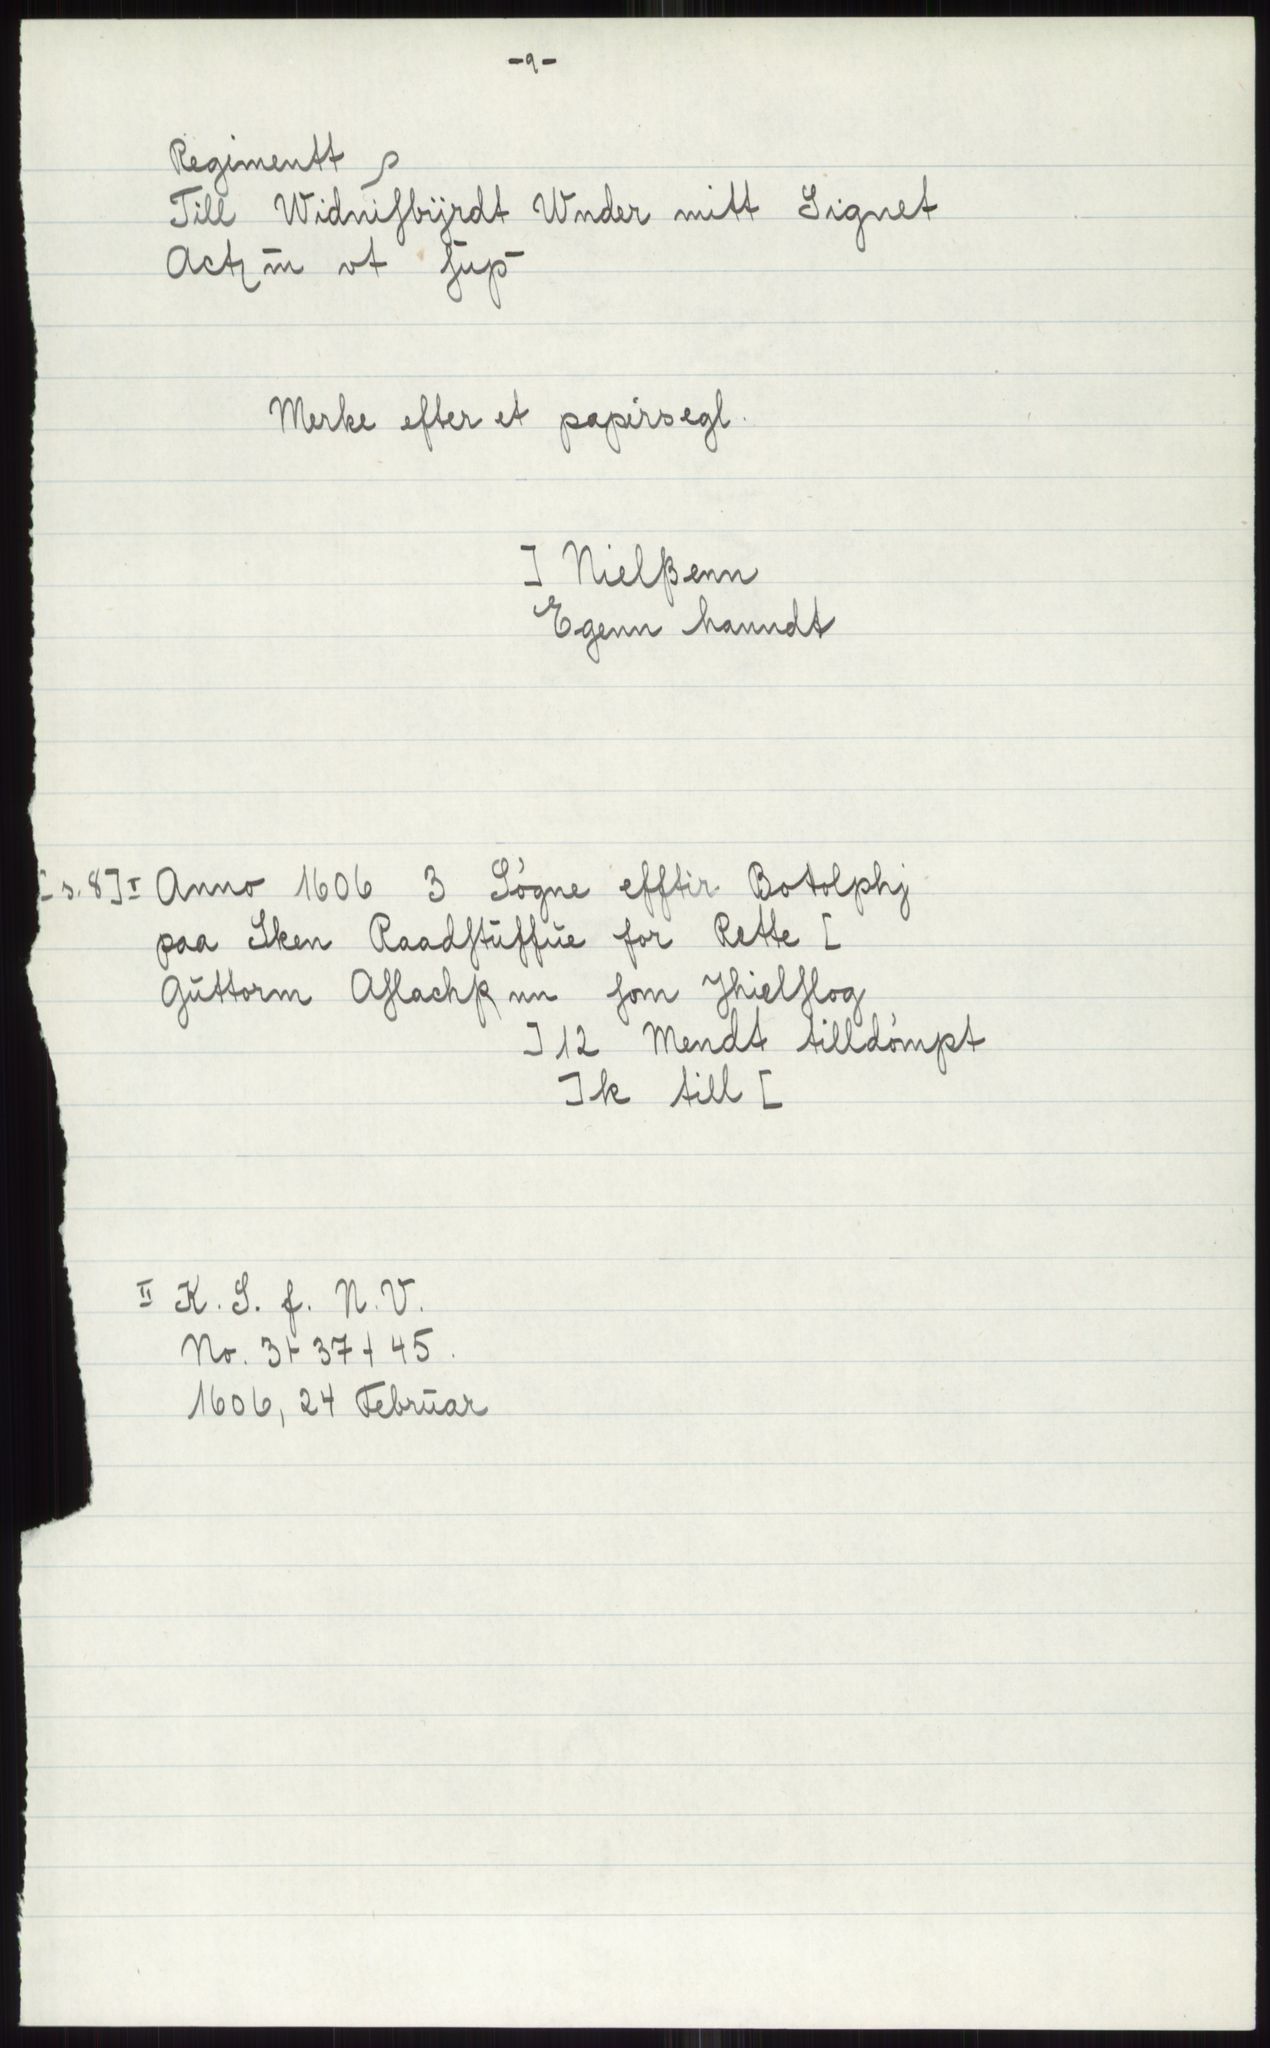 -9-
Regimentt
Till Widniſbÿrdt Wnder mitt Signet
Actz m̄ vt ſup̄
Merke efter et papirsegl.
] Nielßenn
Egenn hanndt
[s. 8] I Anno 1606 3 Søgne efftir Botolphj
paa Sken Raadſtuffue for Rette [
Guttorm Aſlachß nn ſom Jhielſlog
] 12 Mendt tilldømpt
] k till [
II K. S. f. N. V.
No. 3 + 37 + 45.
1606, 24 Februar